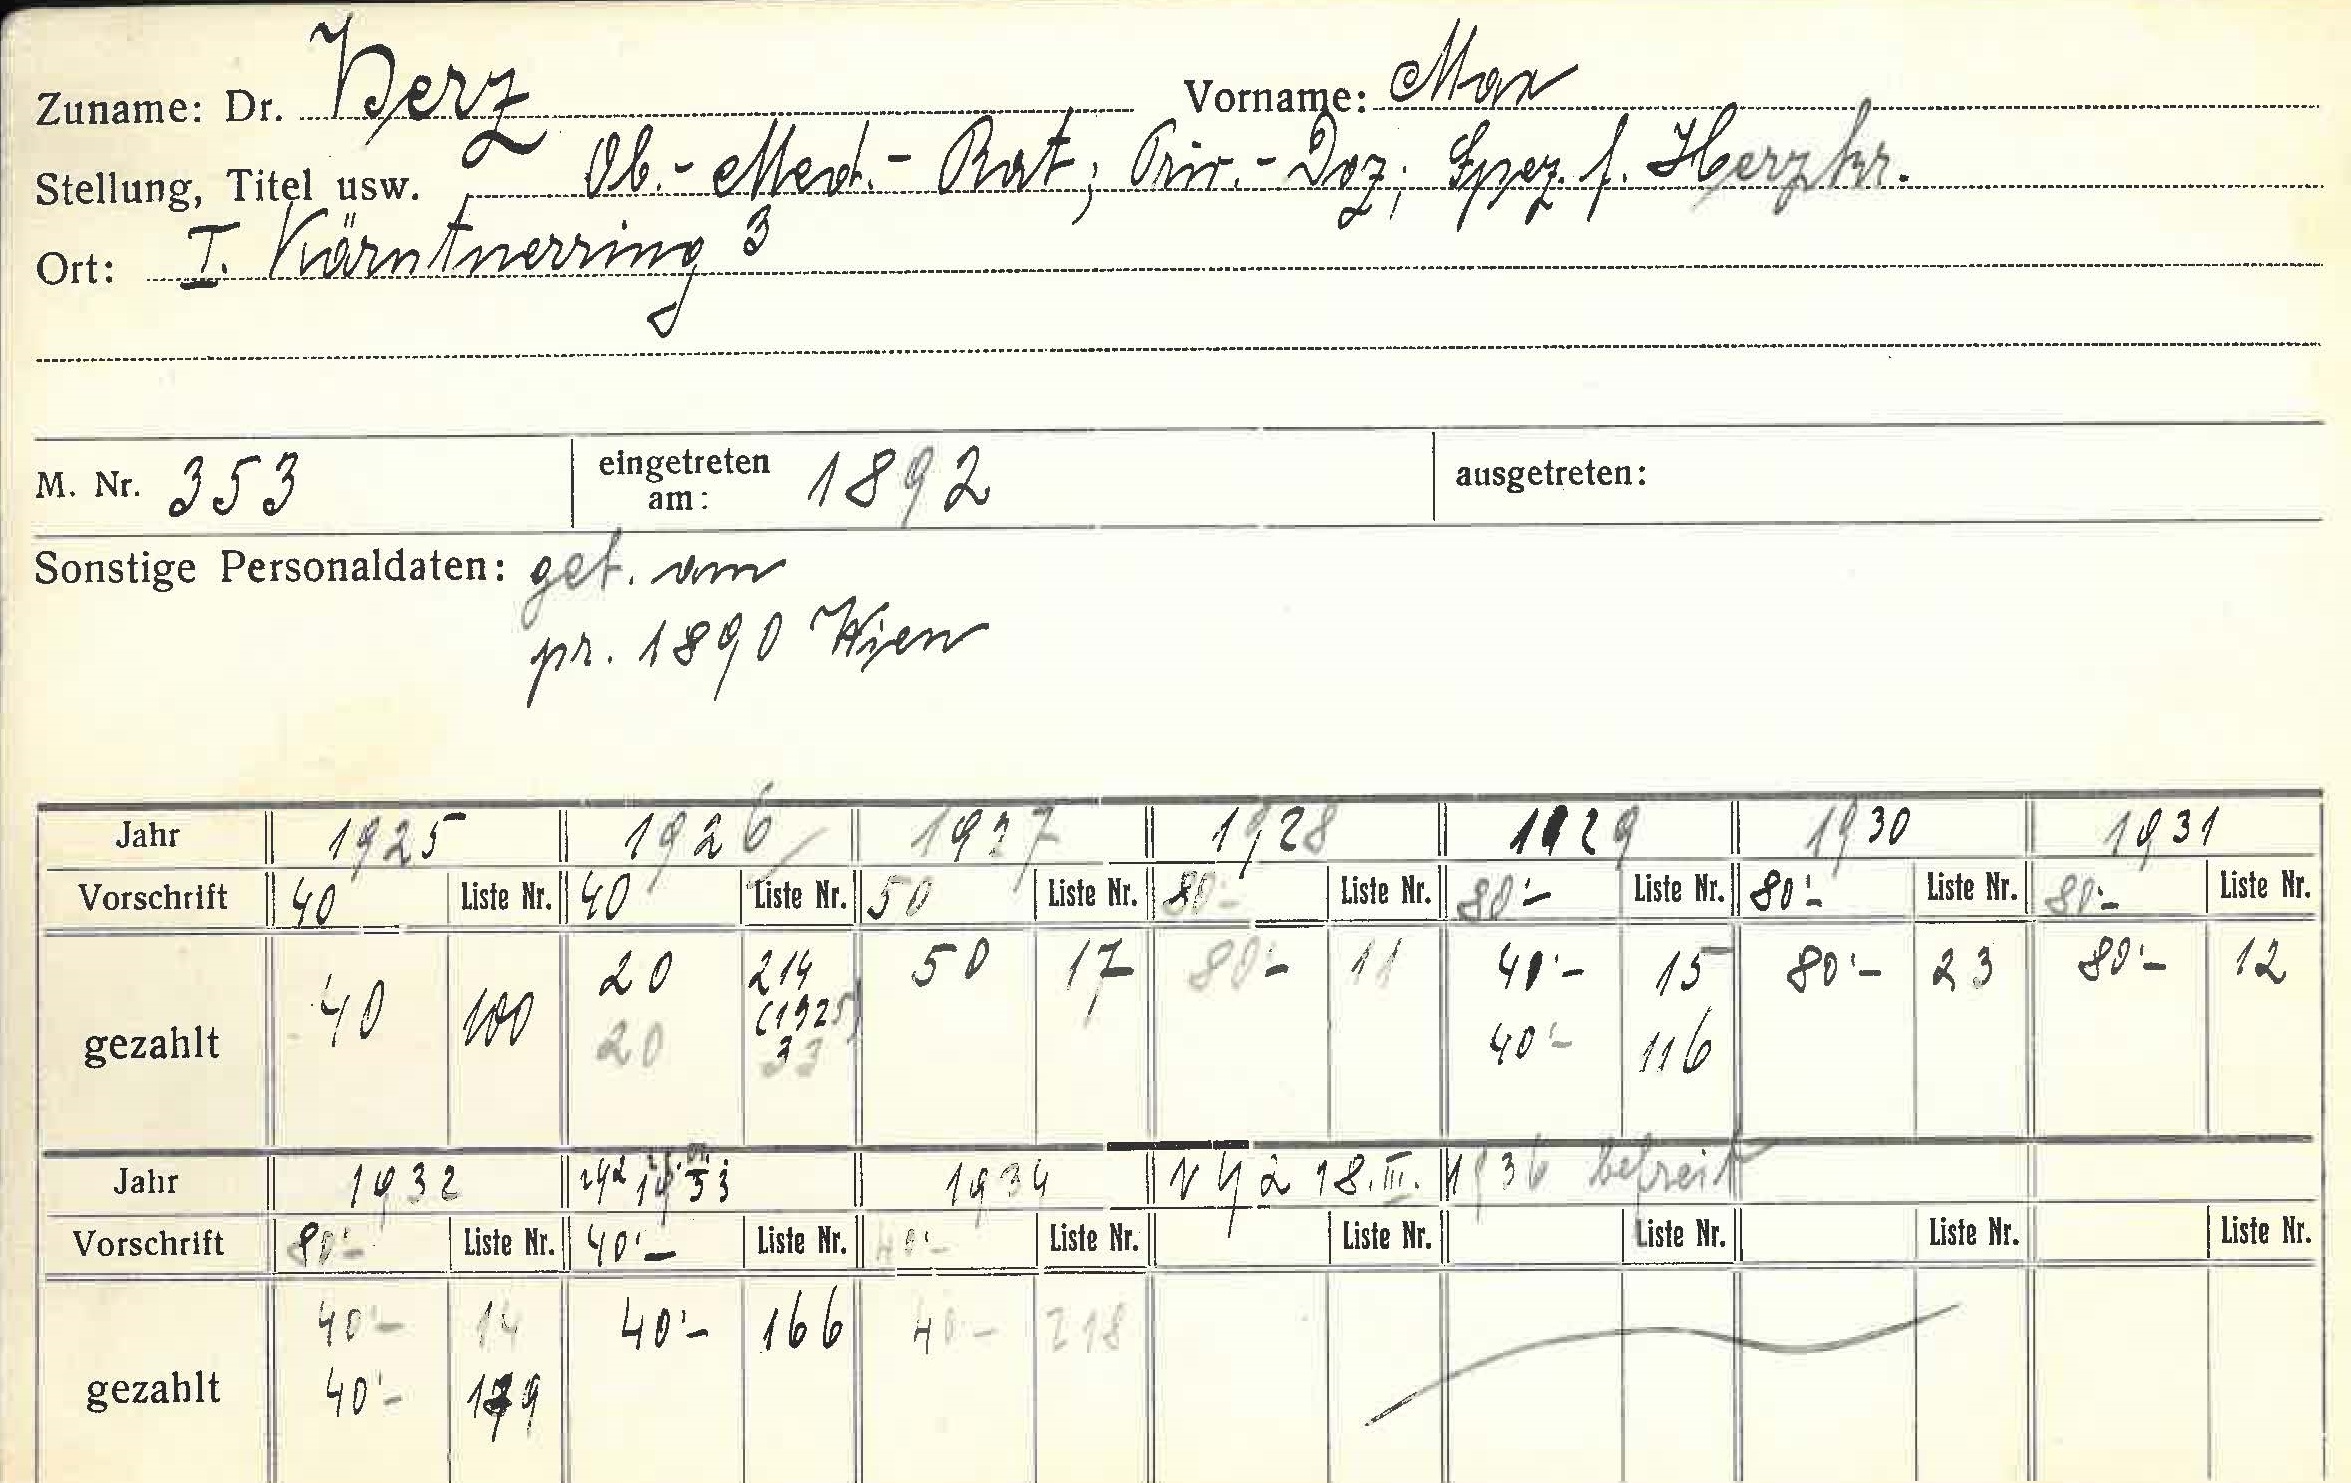 Zuname: Dr. Herz Vorname: Max
Stellung, Titel usw. Ob.-Med.-Rat; Priv.-Doz; Spez. f. Herzkr.
Ort: I. Kärntnerring 3
M. Nr. 353 eingetreten am: 1892 ausgetreten:
Sonstige Personaldaten: geb. am
pr. 1890 Wien
Jahr 1925 1926 1927 1928 1929 1930 1931
Vorschrift 40 Liste Nr. 40 Liste Nr. 50 Liste Nr. 80'- Liste Nr. 80'- Liste Nr. 80'- Liste Nr. 80'- Liste Nr.
gezahlt 40 100 20 214 50 17 80'- 11 40'- 15 80'- 23 80'- 12
(1925)
20 33 40'- 116
Jahr 1932 1933 1934 18.III. 1936 befreit
Vorschrift 80'- Liste Nr. 40'- Liste Nr. 40'- Liste Nr. Liste Nr. Liste Nr. Liste Nr. Liste Nr.
gezahlt 40'- 14 40'- 166 40'- 218
40'- 179